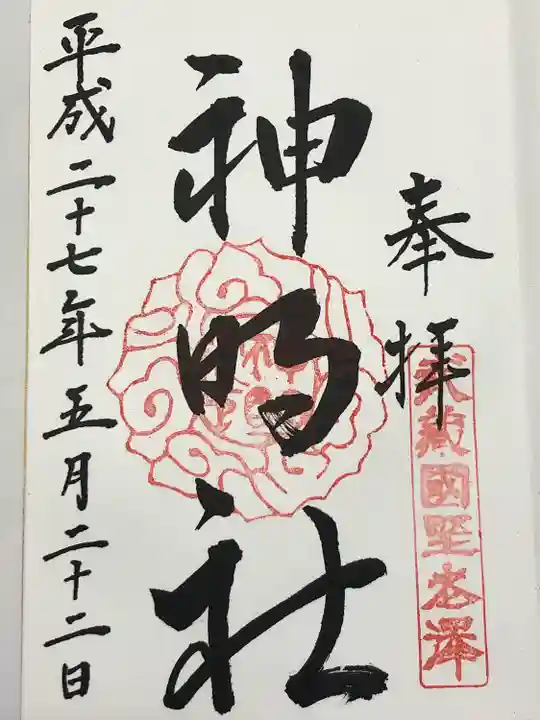 奉拝
武蔵國野老澤
神明社
平成二十七年五月二十二日